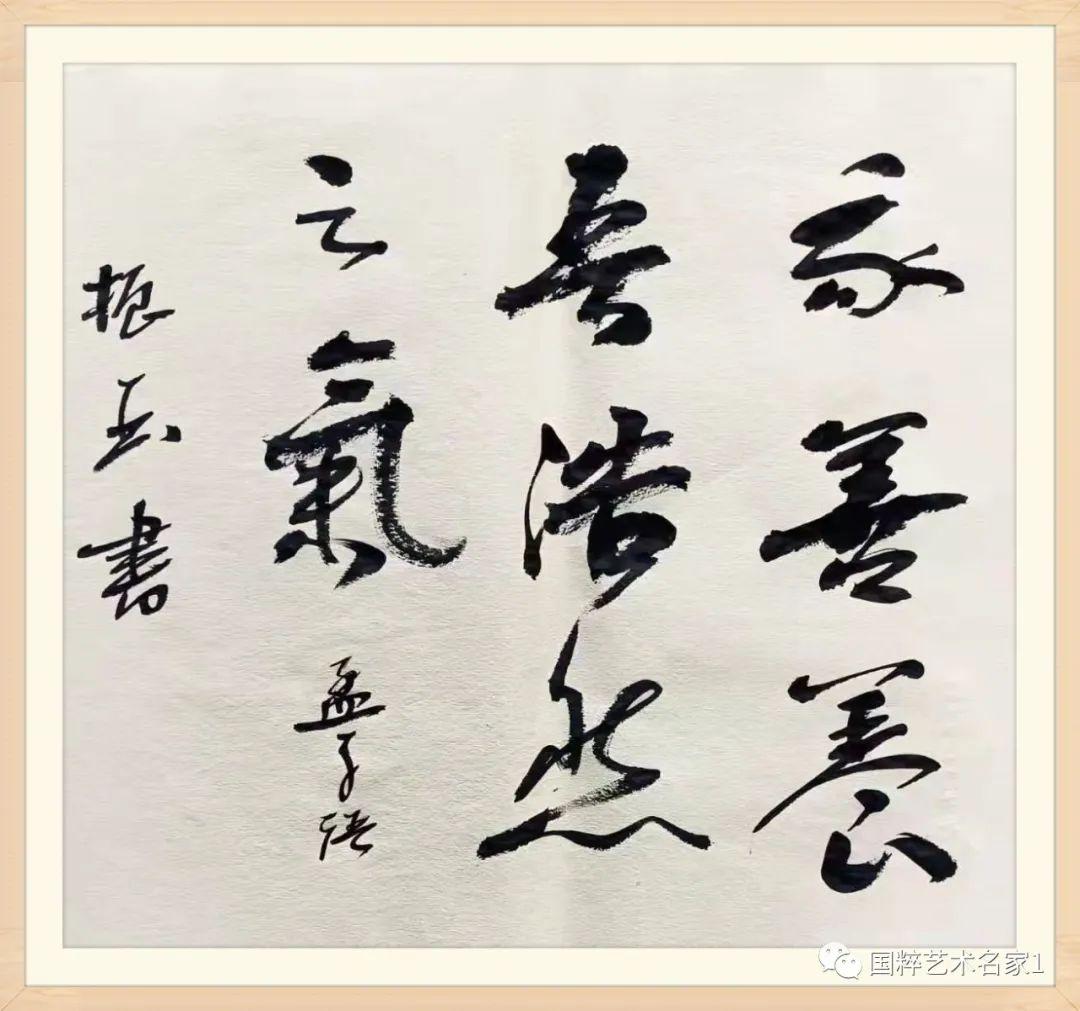 我善養
吾浩然
之氣 孟子語
振玉書
国粹艺术名家1